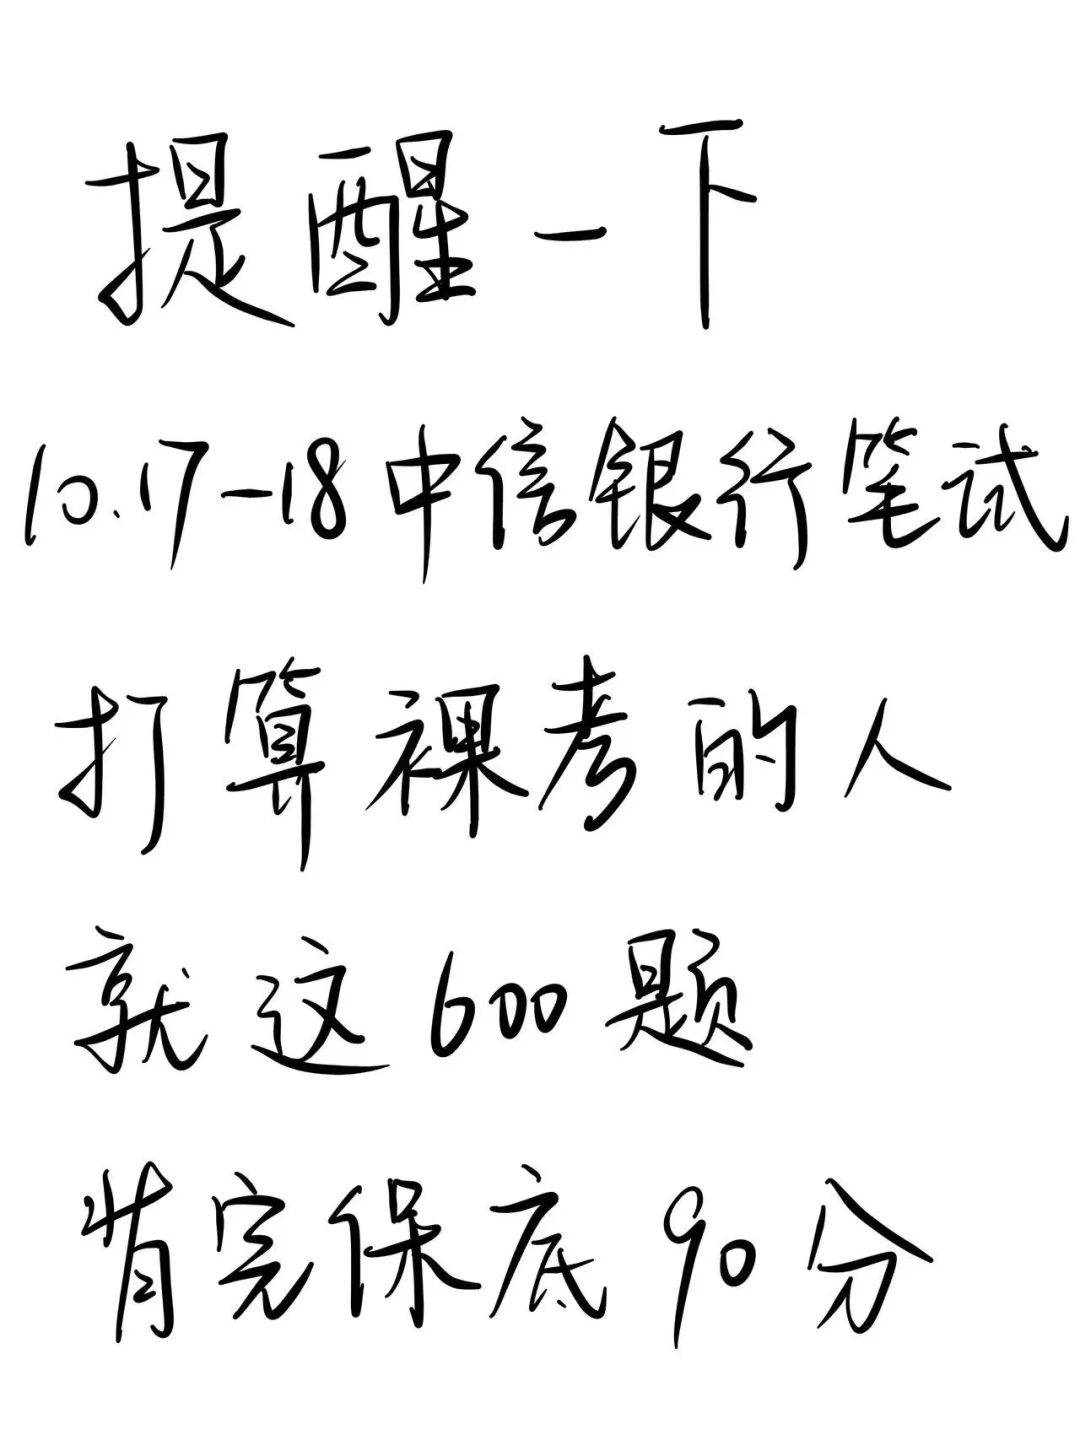 提醒一下
10.17-18中信银行笔试
打算裸考的人
就这600题
背完保底90分